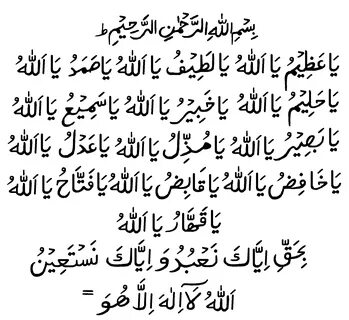 بِسْمِ اللهِ الرَّحْمٰنِ الرَّحِيْمِ ط
يَا عَظِيْمُ يَا اَللهُ يَا لَطِيْفُ يَا اَللهُ يَا صَمَدُ يَا اَللهُ
يَا حَلِيْمُ يَا اَللهُ يَا خَبِيْرُ يَا اَللهُ يَا سَمِيْعُ يَا اَللهُ
يَا بَصِيْرُ يَا اَللهُ يَا مُذِلُّ يَا اَللهُ يَا عَدْلُ يَا اَللهُ
يَا خَافِضُ يَا اَللهُ يَا قَابِضُ يَا اَللهُ يَا فَتَّاحُ يَا اَللهُ
يَا قَهَّارُ يَا اَللهُ
بِحَقِّ اِيَّاكَ نَعْبُدُ وَ اِيَّاكَ نَسْتَعِيْنُ
اَللهُ لَآ اِلٰهَ اِلَّا هُوَ =